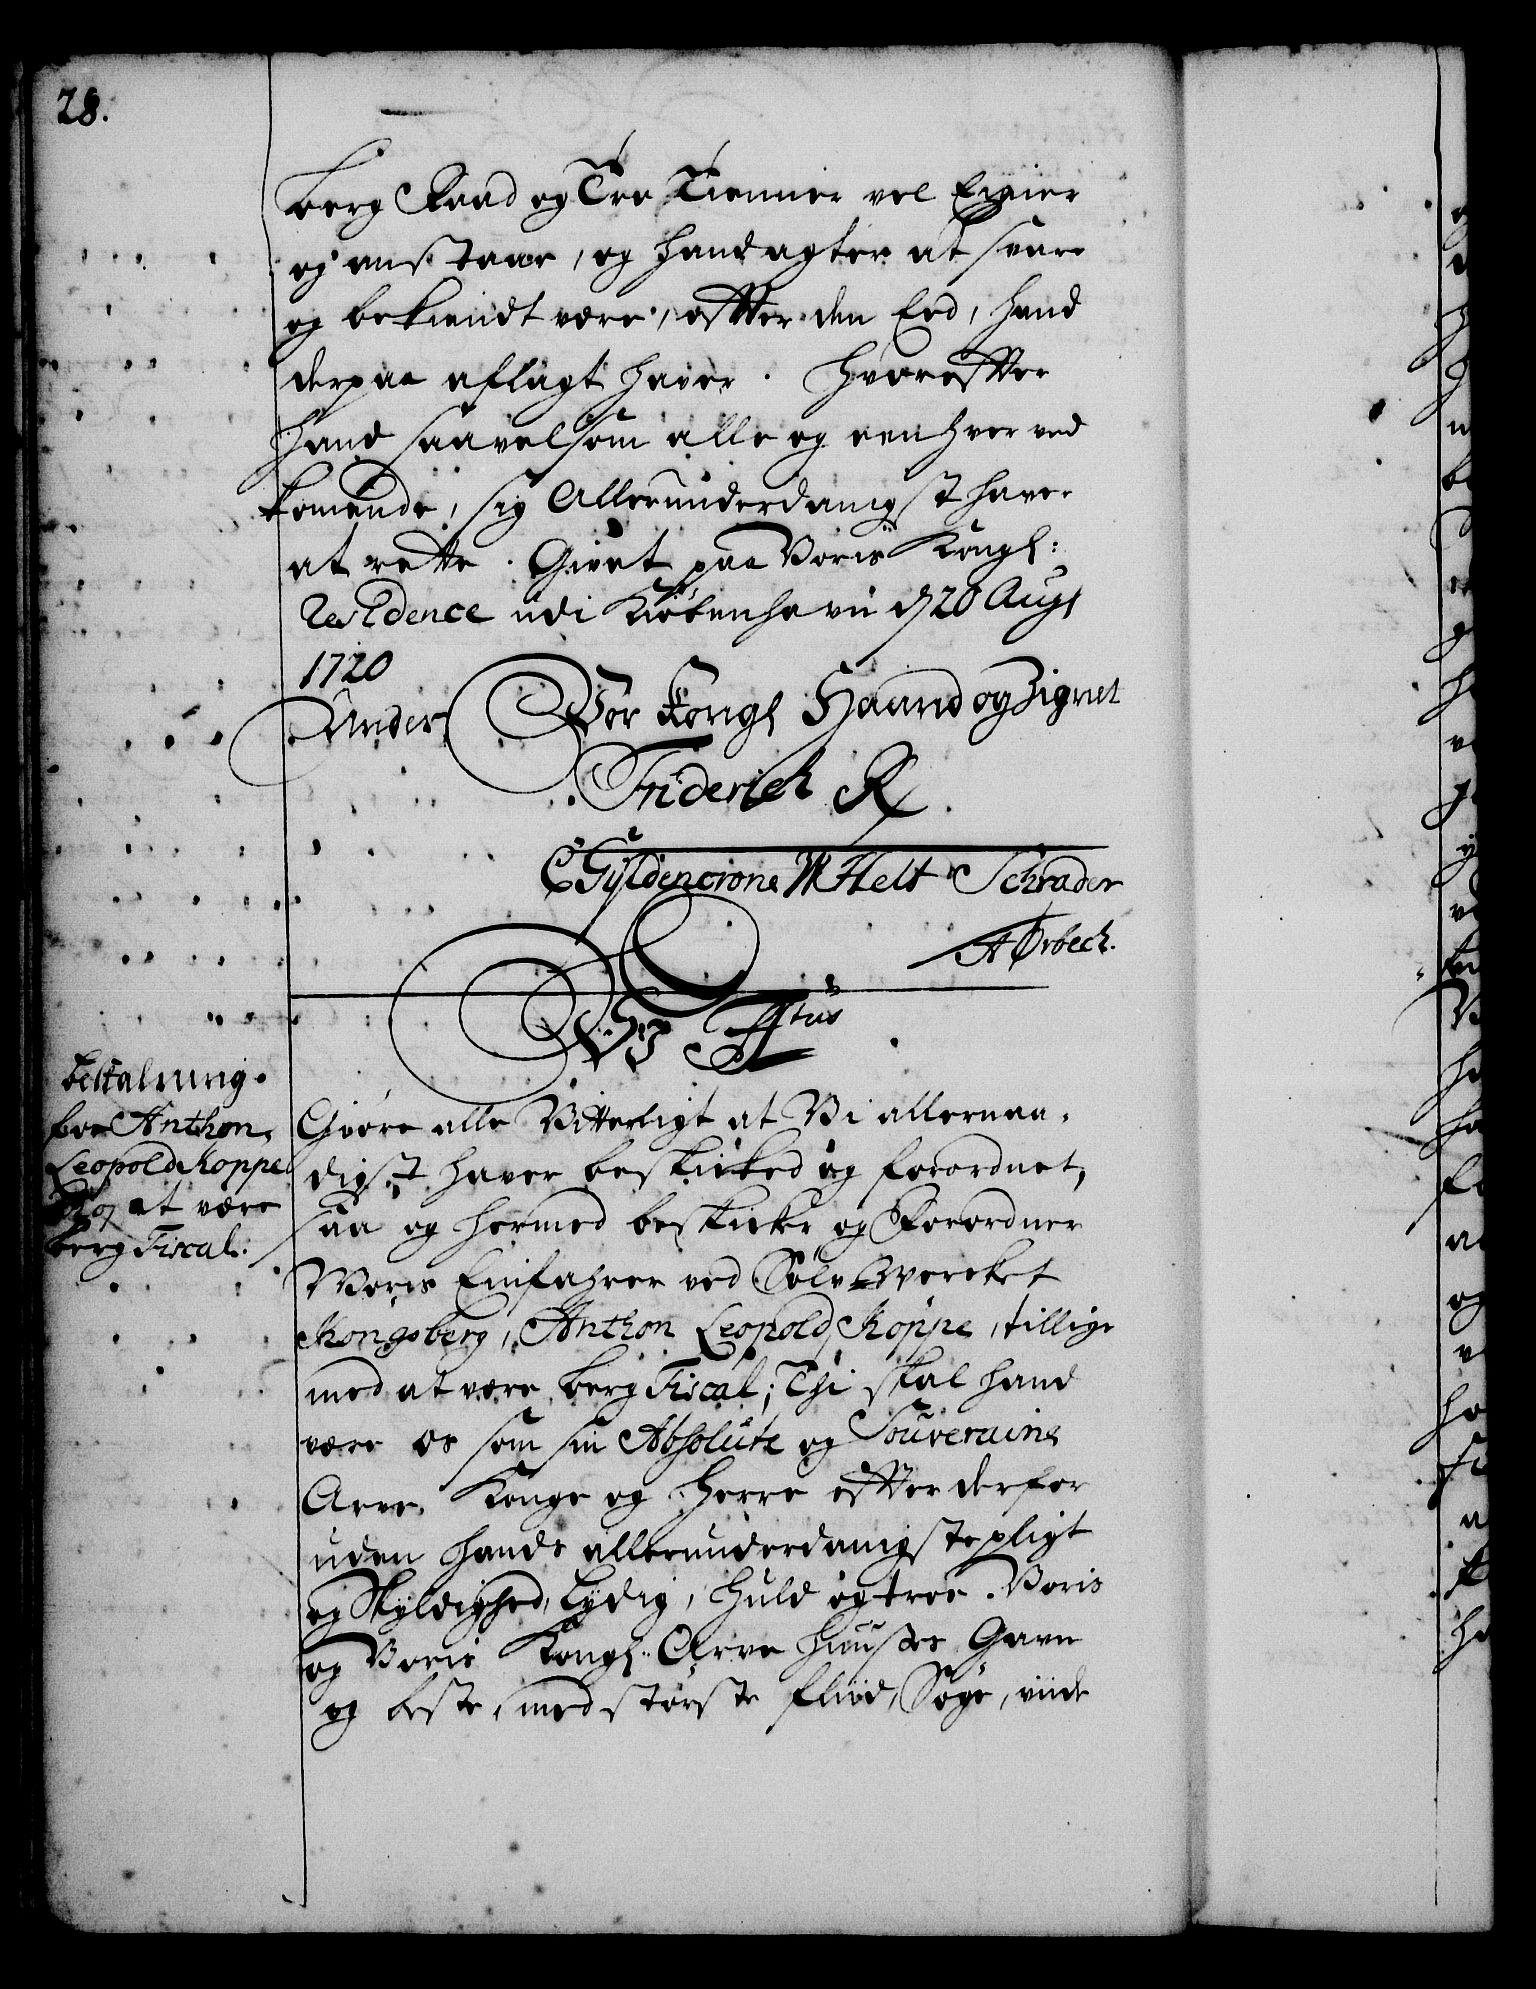 28.
berg Raad og Tro Tienner vel Eigner
og anstaar, og hand agter at svare
og bekiendt være, efter den Eed, hand
derpaa aflagt haver. Hvorefter
hand saavelsom alle og een hver ved
komende, sig Allerunderdanigst haver
at rette. Givet paa Voris Kongl:
Residence udi Kiøbenhavn d 20 Aug
1720
Under Vor Kongl Haand og Zignet
Friderich R.
C Gyldencrone W Helt Schrader
A Ørbech.
Vj F 4tus
Bestalning
for Anthon
Leopold Koppe
at være
berg Fiscal.
Giøre alle Vitterligt at Vi allernaa-
digst haver beskicked og forordnet,
saa og hermed beskicke og Forordner
Voris Einfahrer ved Sølv Wercket
Kongsberg, Anthon Leopold Koppe, tillige
med at være berg Fiscal; Thi skal hand
være os som sin Absolute og Souveraine
Arve Konge og Herre efter derfor
uden hands allerunderdanigste pligt
og Skyldighed, Lydig, Huld og troe. Voris
og Voris Kongl. Arve Huuses Gavn
og beste, med største fliid, Søge, vide